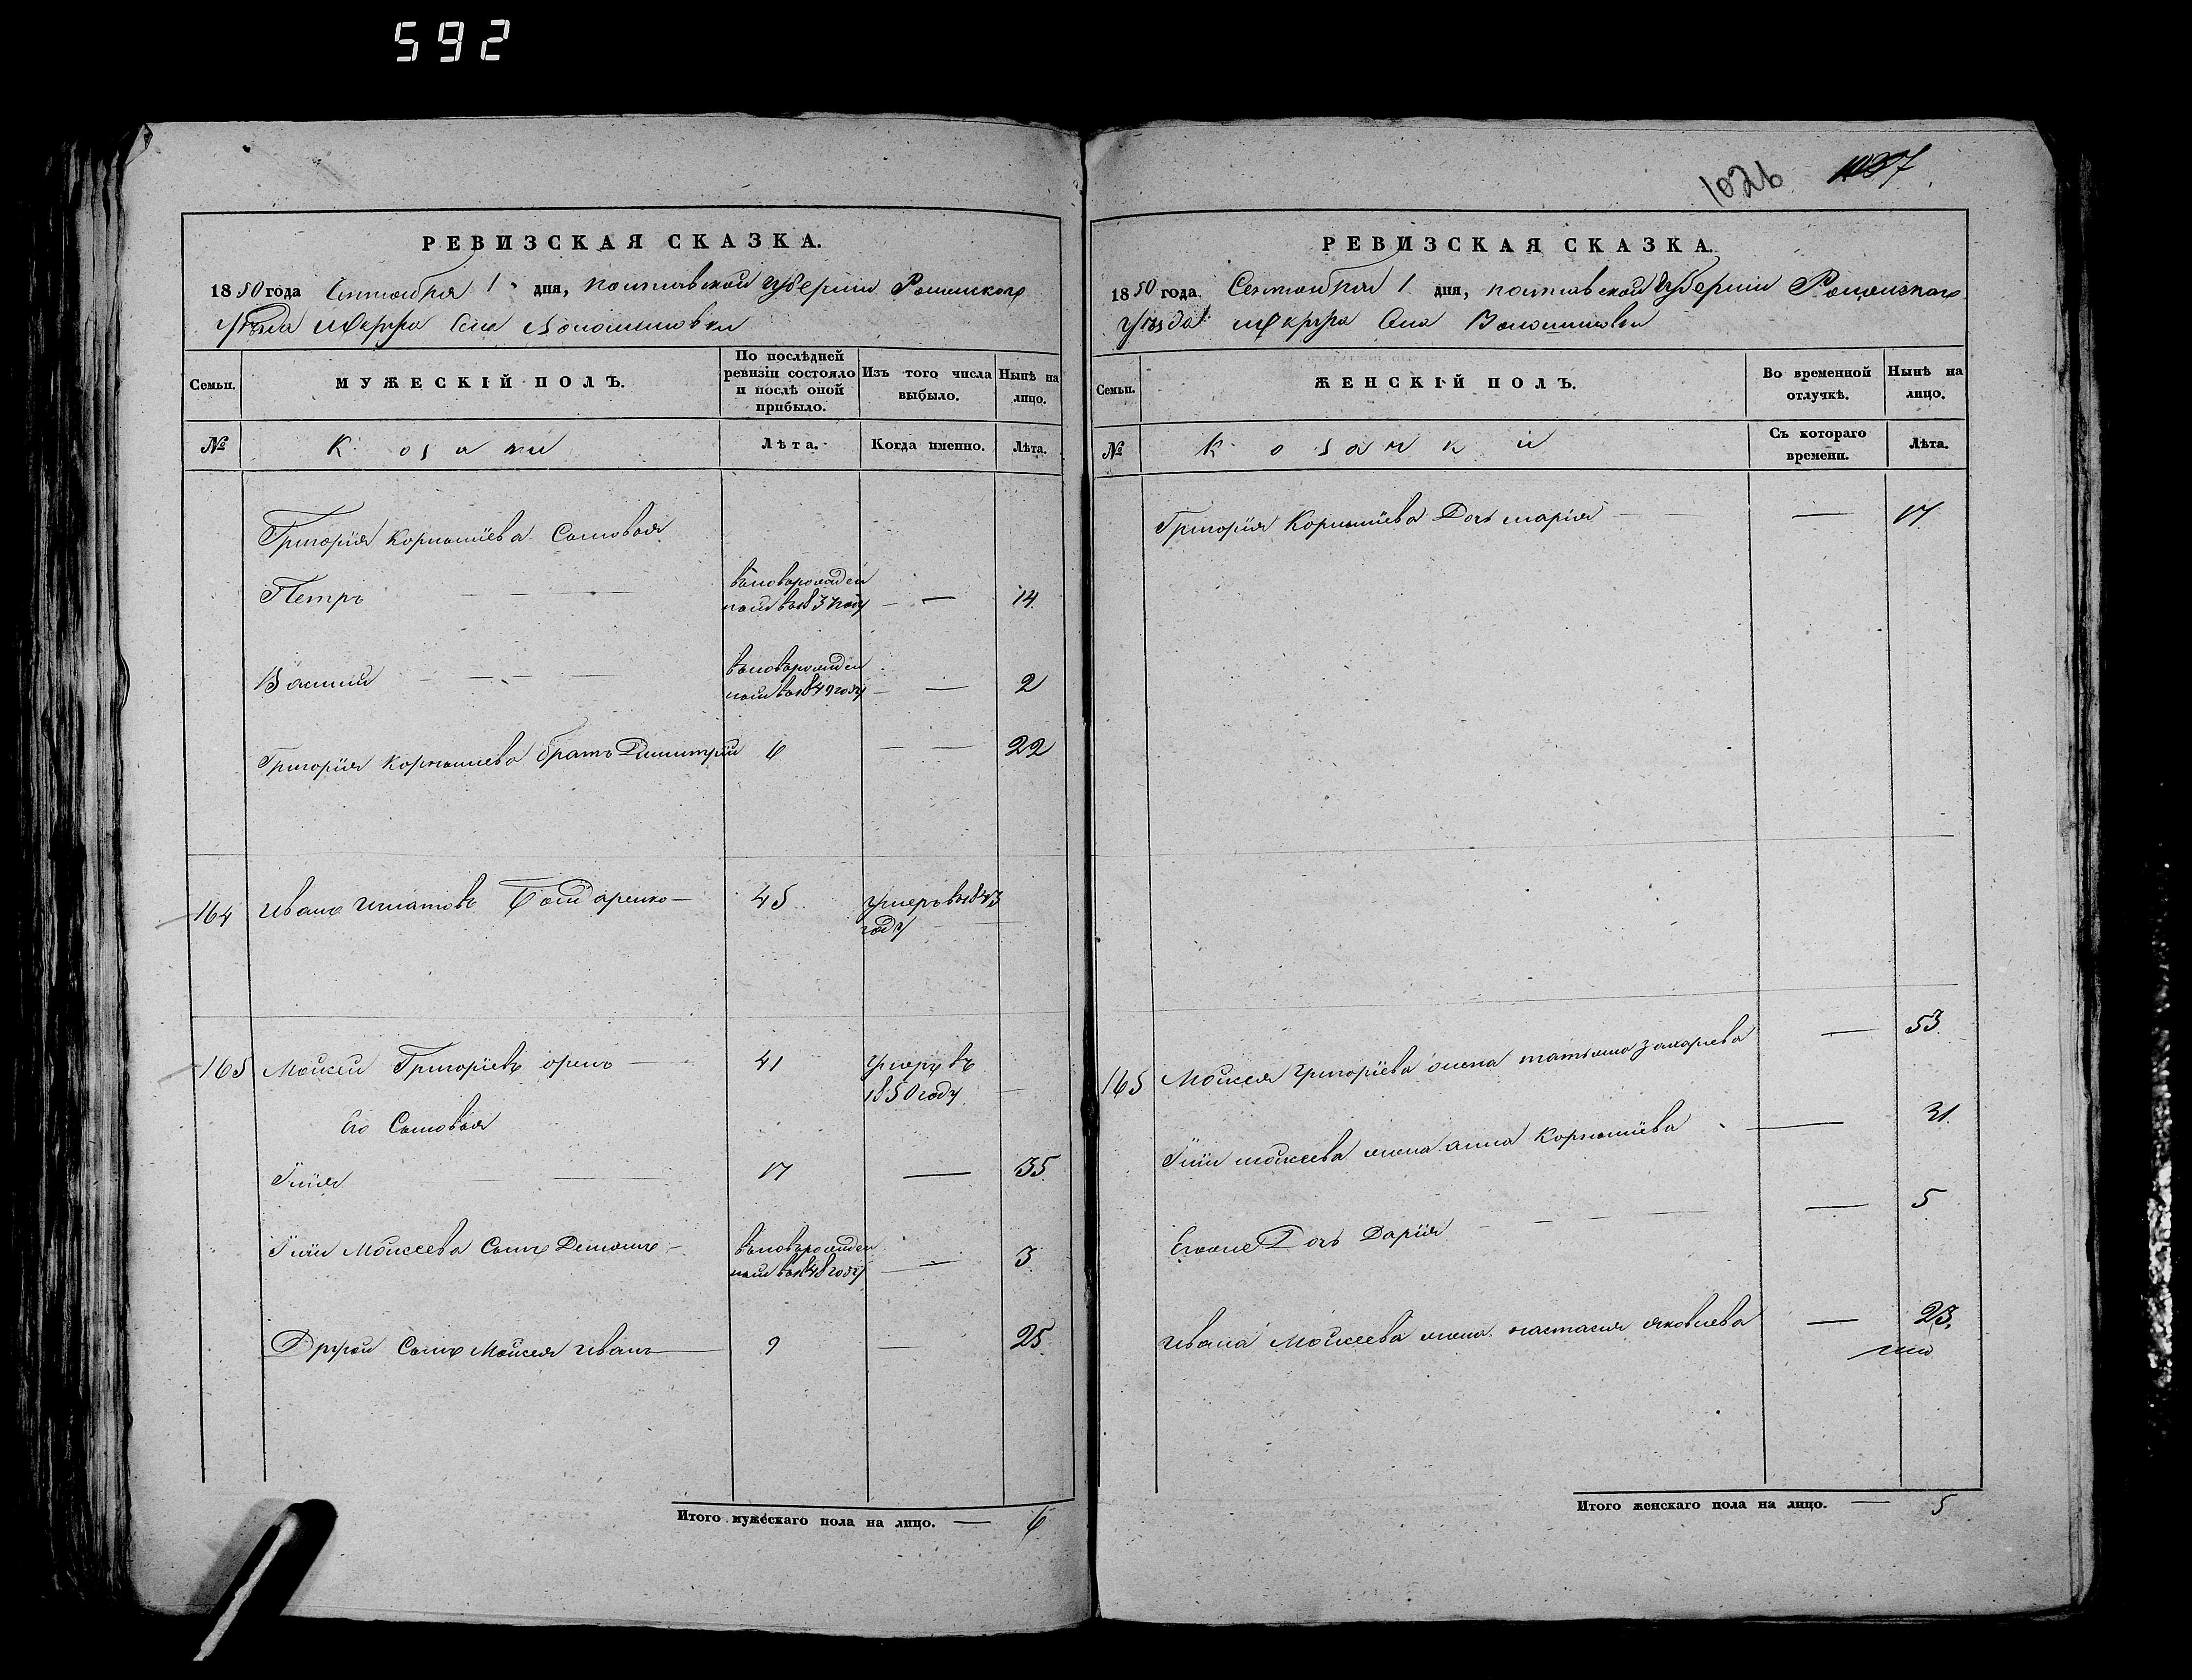 592
1026 1027
РЕВИЗСКАЯ СКАЗКА.
1850 года Сентября 1 дня, полтавской губернии Роменского
уѣзда округа села Волошиновки
Семьи. МУЖЕСКІЙ ПОЛЪ. По послѣдней ревизіи состояло и послѣ оной прибыло. Изъ того числа выбыло. Нынѣ на лицо.
№ Козаки Лѣта. Когда именно. Лѣта.
Григорія Корнѣіева Сыновья
Петръ — — — вновьрожден
ный въ 1837 году — — 14.
Василий — — — вновьрожден
ный въ 1849 году — — 2
Григорія Корнѣіева братъ Димитрий 6 — — 22
164 Иванъ Игнатовъ Бондаренко — 45 умеръ въ 1843
году
165 Мойсей Григоріевъ — 41 умеръ въ
1850 году —
Его Сыновья
Илия — — 17 — 35.
Иліи Мойсеева Сынъ Демьянъ — вновьрожден
ный въ 1848 году — 3
Другой Сынъ Мойсея Иванъ — 9 — 25.
Итого мужескаго пола на лицо. — 6
РЕВИЗСКАЯ СКАЗКА.
1850 года Сентября 1 дня, полтавской губерніи Роменского
уѣзда округа Села Волошиновки
Семьи. ЖЕНСКІЙ ПОЛЪ. Во временной отлучкѣ. Нынѣ на лицо.
№ Козачки Съ котораго времени. Лѣта.
Григорія Корнѣіева Дочь марія — — — 17.
165 Мойсея Григоріева жена татьяна захарьева — 53.
Иліи мойсеева жена анна Корнѣіева — 31.
Егоже Дочь Дарія — — — — 5
Ивана Мойсеева жена настасия яковлева — 23.
Итого женскаго пола на лицо. — 5